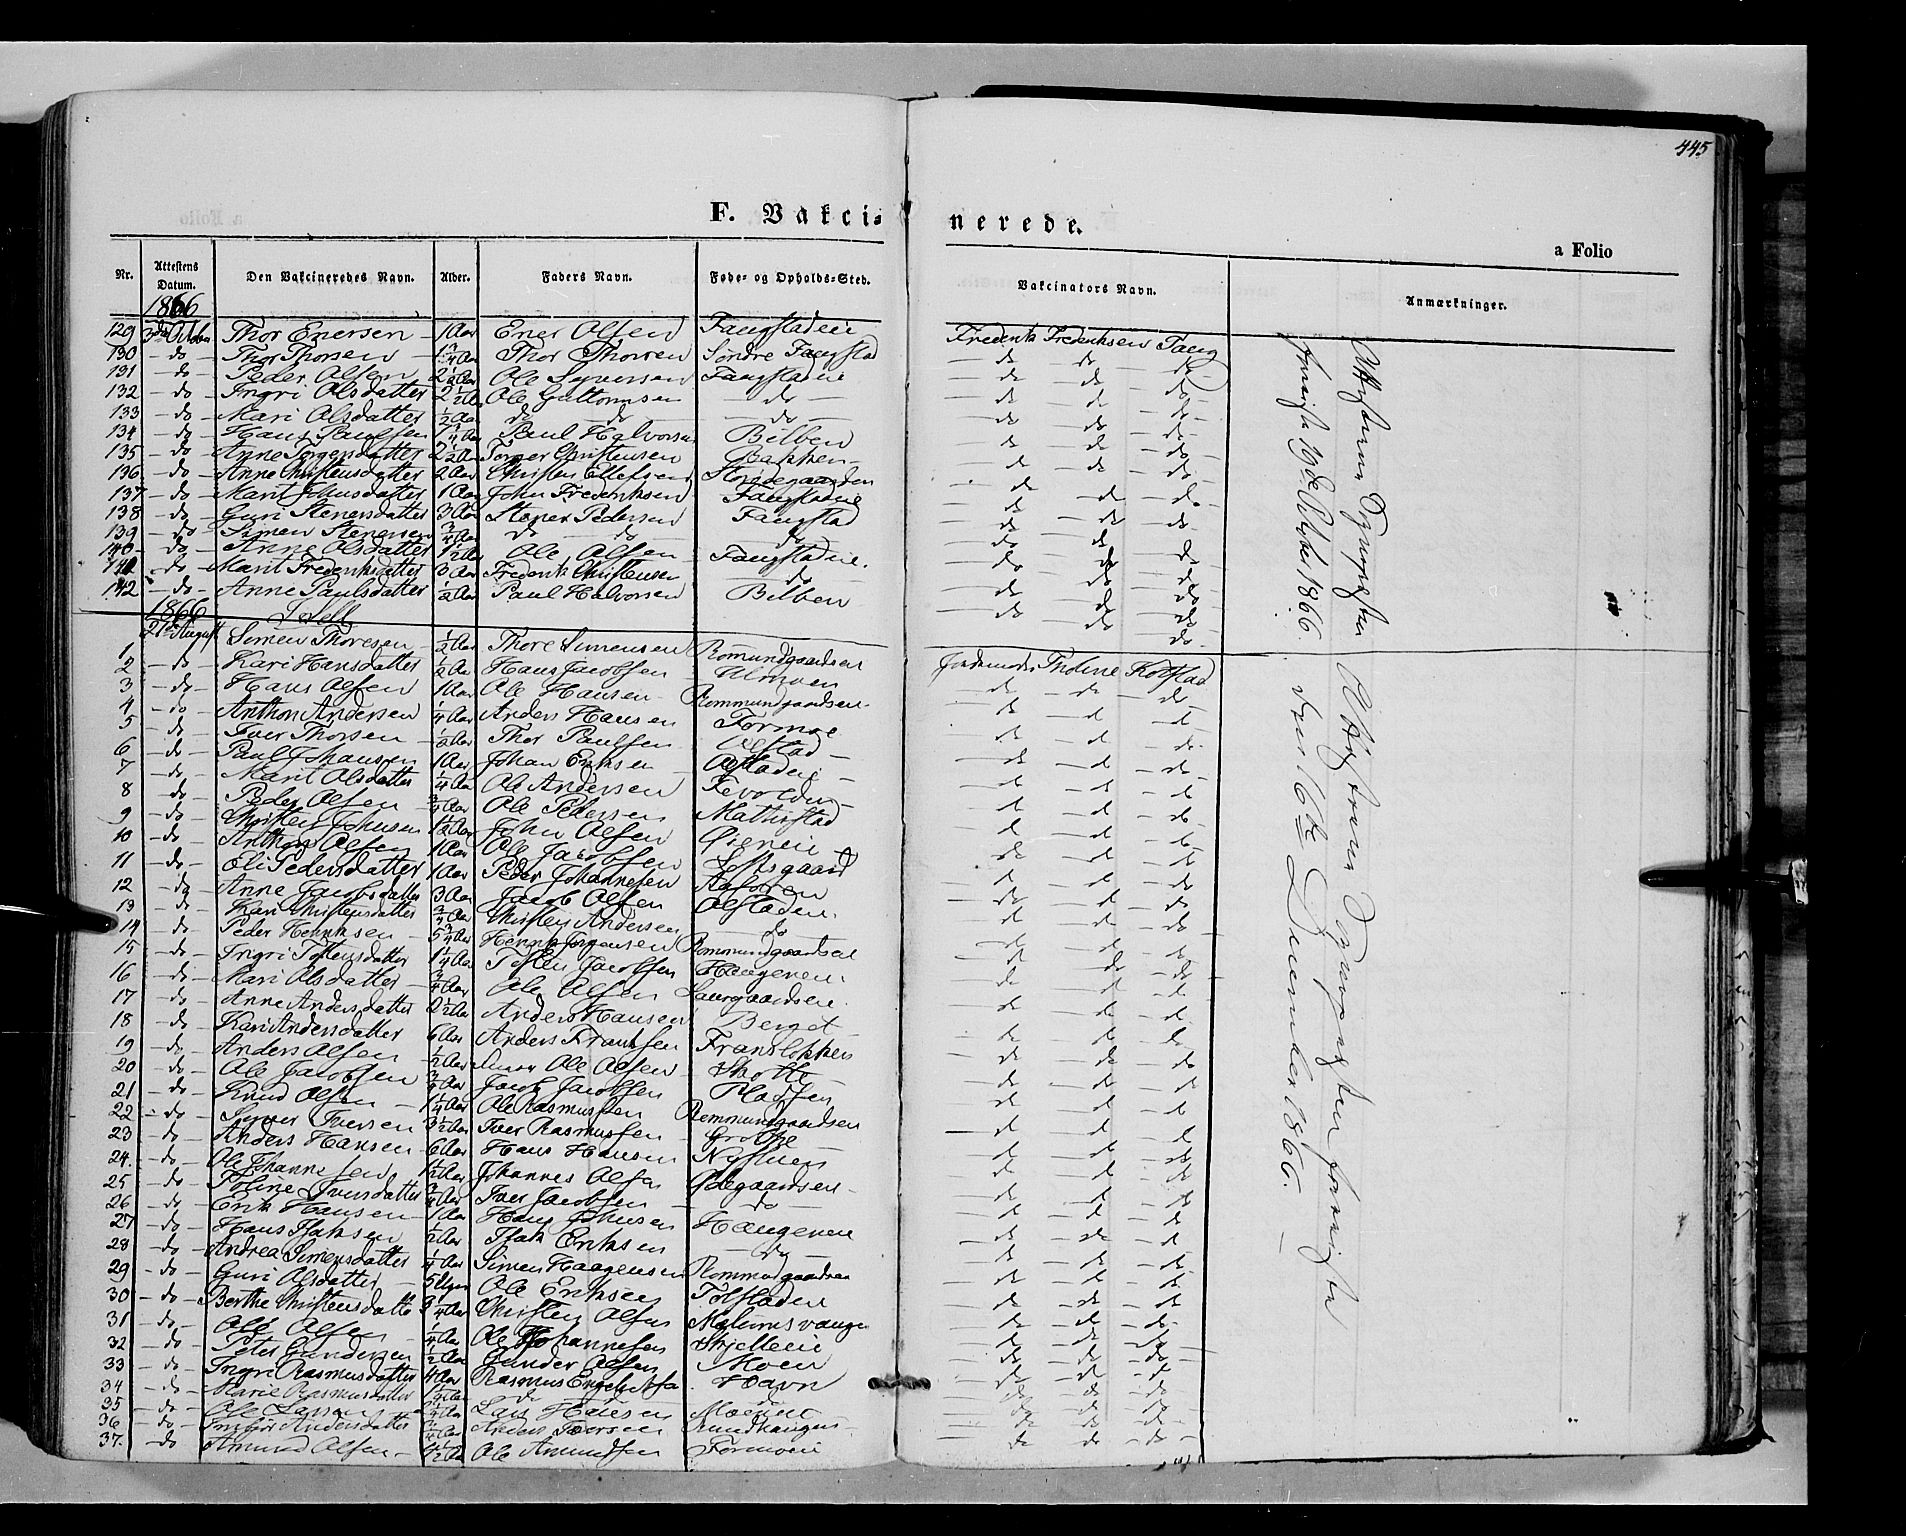 445
F. Vakci- nerede.
a Folio
Nr. Attestens Datum. Den Vakcineredes Navn. Alder. Faders Navn. Føde- og Opholds-Sted. Vakcinators Navn. Anmærkninger.
1866
129 3die Octobr Thor Enersen 1 Aar Ener Olsen Faugstadeie Frederik Frederiksen Faug
130 - do - Thor Thorsen 1 3/4 Aar Thor Thorsen Søndre Faugstad - do - do - do
131 - do - Peder Olsen 2 1/2 Aar Ole Syversen Faugstadeie - do - do - do
132 - do - Ingri Olsdatter 2 1/2 Aar Ole Guttormsen - do - - do - do - do
133 - do - Mari Olsdatter 1/2 Aar do do - do - - do - do - do
134 - do - Hans Paulsen 1 1/4 Aar Paul Halvorsen Bilben - do - do - do
135 - do - Anne Torgersdatter 2 1/2 Aar Torger Christensen Bakken - do - do - do
136 - do - Anne Christensdatter 2 Aar Christen Ellefsen - do - do - do
137 - do - Marit Johnsdatter 1 Aar John Frederiksen Faugstadeie - do - do - do
138 - do - Guri Stenersdatter 3 Aar Stener Pedersen Faugstad - do - do - do
139 - do Simen Stenersen 3/4 Aar do do do - do - do - do
140 - do - Anne Olsdatter 1 1/2 Aar Ole Olsen Faugstadeie. do do do
141 - do - Marit Frederiksdatter 3 Aar Frederik Christensen do do do do
142 - do - Anne Paulsdatter 1/2 Aar Paul Halvorsen Bilben do do do
1866 Sell
1 21de August Simen Thoresen 1/2 Aar Thore Simensen Romundgaardseie Jordemoder Tholine Kolstad
2 - do - Kari Hansdatter 1/2 Aar Hans Jacobsen Ulmoen - do - do - do
3 - do - Hans Olsen 1 Aar Ole Hansen Rommundgaardseie - do - do - do
4 - do - Anthon Andersen 1/4 Aar Anders Hansen Formoe - do - do - do
5 - do Iver Thorsen 1/2 Aar Thor Paulsen Olstad - do - do - do
6 - do - Paul Johansen 1 Aar Johan Eriksen Olstadeie - do - do - do
7 - do - Marit Olsdatter 1/4 Aar Ole Andersen - do - do - do
8 - do - Peder Olsen 3/4 Aar Ole Pedersen - do - do - do
9 - do - Christen Johnsen 1 1/2 Aar John Olsen Øieneie - do - do - do
10 - do Anthon Olsen 1 Aar Ole Jacobsen Loftsgaard - do - do - do
11 - do - Eli Pedersdatter 1 Aar Peder Johannesen - do - do - do
12 - do - Anne Jacobsdatter 3 Aar Jacob Olsen Olstadeie. - do - do - do
13 - do Kari Christensdatter 3/4 Aar Christen Andersen do - do - do - do
14 - do - Peder Henriksen 5 3/4 Aar Henrik Jørgensen Rommundgaardseie - do - do - do
15 - do - Ingri Tostensdatter 1 1/4 Aar Tosten Jacobsen Haugeneie - do - do - do
16 - do - Mari Olsdatter 3/4 Aar Ole Olsen Laurgaardseie. - do - do - do
17 - do - Anne Andersdatter 2 1/2 Aar Anders Hansen Berget - do - do - do
18 - do - Kari Andersdatter 6 Aar Anders Frantsen Fransløkken - do - do - do
19 - do - Anders Olsen 1/2 Aar Ole Olsen - do - do - do
20 - do - Ole Jacobsen 3/4 Aar Jacob Jacobsen Pladsen - do - do - do
21 - do - Knud Olsen 1 1/4 Aar Ole Rasmussen Rommundgaardseie - do - do - do
22 - do - Syver Iversen 3 1/2 Aar Iver Rasmussen - do - do - do
23 - do - Anders Hansen 6 Aar Hans Hansen Nystuen - do - do - do
24. - do - Ole Johannesen 1 1/2 Aar Johannes Olsen Ødegaardseie - do - do - do
25 - do - Toline Iversdatter 3/4 Aar Iver Jacobsen - do - - do - do - do
26 - do - Erik Hansen 1 Aar Hans Johnsen Haugeneie - do - do - do
27 - do Hans Isaksen 1/2 Aar Isak Eriksen - do - - do - do - do
28 - do - Andrea Simensdatter 1/4 Aar Simen Haagensen Rommundgaardseie - do - do - do
29 - do - Guri Olsdatter 5 Uger Ole Eriksen - do - do - do
30 - do - Berthe Christensdatter 3/4 Aar Christen Olsen - do - do - do
31 - do - Ole Olsen 1/4 Aar Ole Johannesen Skjelleeie - do - do - do
32 - do Peter Gundersen 1/2 Aar Gunder Olsen Moen - do - do - do
33 - do - Ingri Rasmusdatter 4 Aar Rasmus Engebretsen Havn - do - do - do
34 - do - Marie Rasmusdatter do do - do - do - do
35 - do - Ole Larsen Lars Hansen - do - do - do
36 - do - Andersdatter Anders Iversen - do - do - do
37. - do Amund Olsen 4 1/2 Aar Ole Amundsen Formoeie - do - do - do
Attesterer Sognepresten
10de October 1866.
Attesterer Sognepresten
16de December 1866.